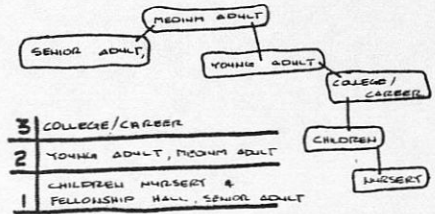 MEDIUM ADULT
SENIOR ADULT,
YOUNG ADULT
COLLEGE/
CAREER
CHILDREN
NURSERY
3 COLLEGE/CAREER
2 YOUNG ADULT, MEDIUM ADULT
1 CHILDREN NURSERY &
FELLOWSHIP HALL, SENIOR ADULT